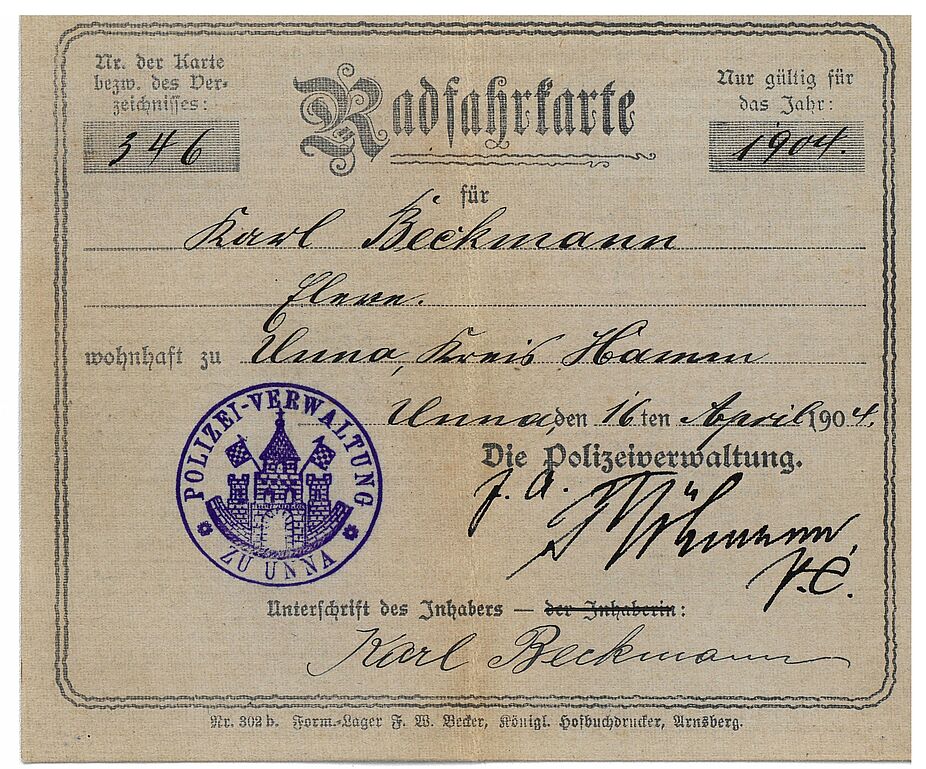 Nr. der Karte
bezw. des Ver-
zeichnisses:
346
Radfahrkarte
Nur gültig für
das Jahr:
1904.
für
Karl Beckmann
Eleve.
wohnhaft zu Unna, Kreis Hamm
Unna, den 16ten April 1904.
Die Polizeiverwaltung.
J. A.
P.C.
POLIZEI-VERWALTUNG
ZU UNNA
Unterschrift des Inhabers — der Inhaberin:
Karl Beckmann
Nr. 302 b. Form.-Lager F. W. Becker, Königl. Hofbuchdrucker, Arnsberg.